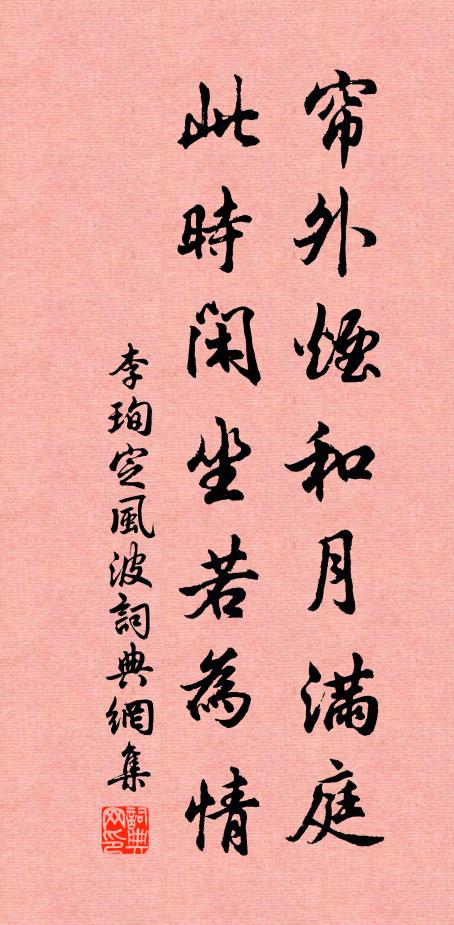 帘外煙和月滿庭
此時閑坐若為情
李珣定風波詞典網集
詞典网印